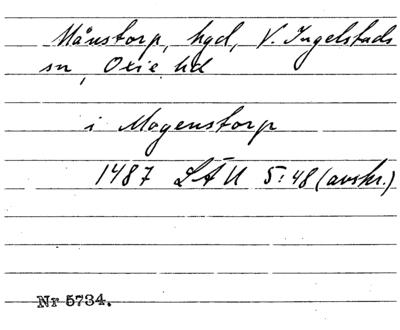 Månstorp, hgd, V. Ingelstads
sn, Oxie hd
i Mogenstorp
1487 LÄU 5:48 (avskr.)
Nr 5734.